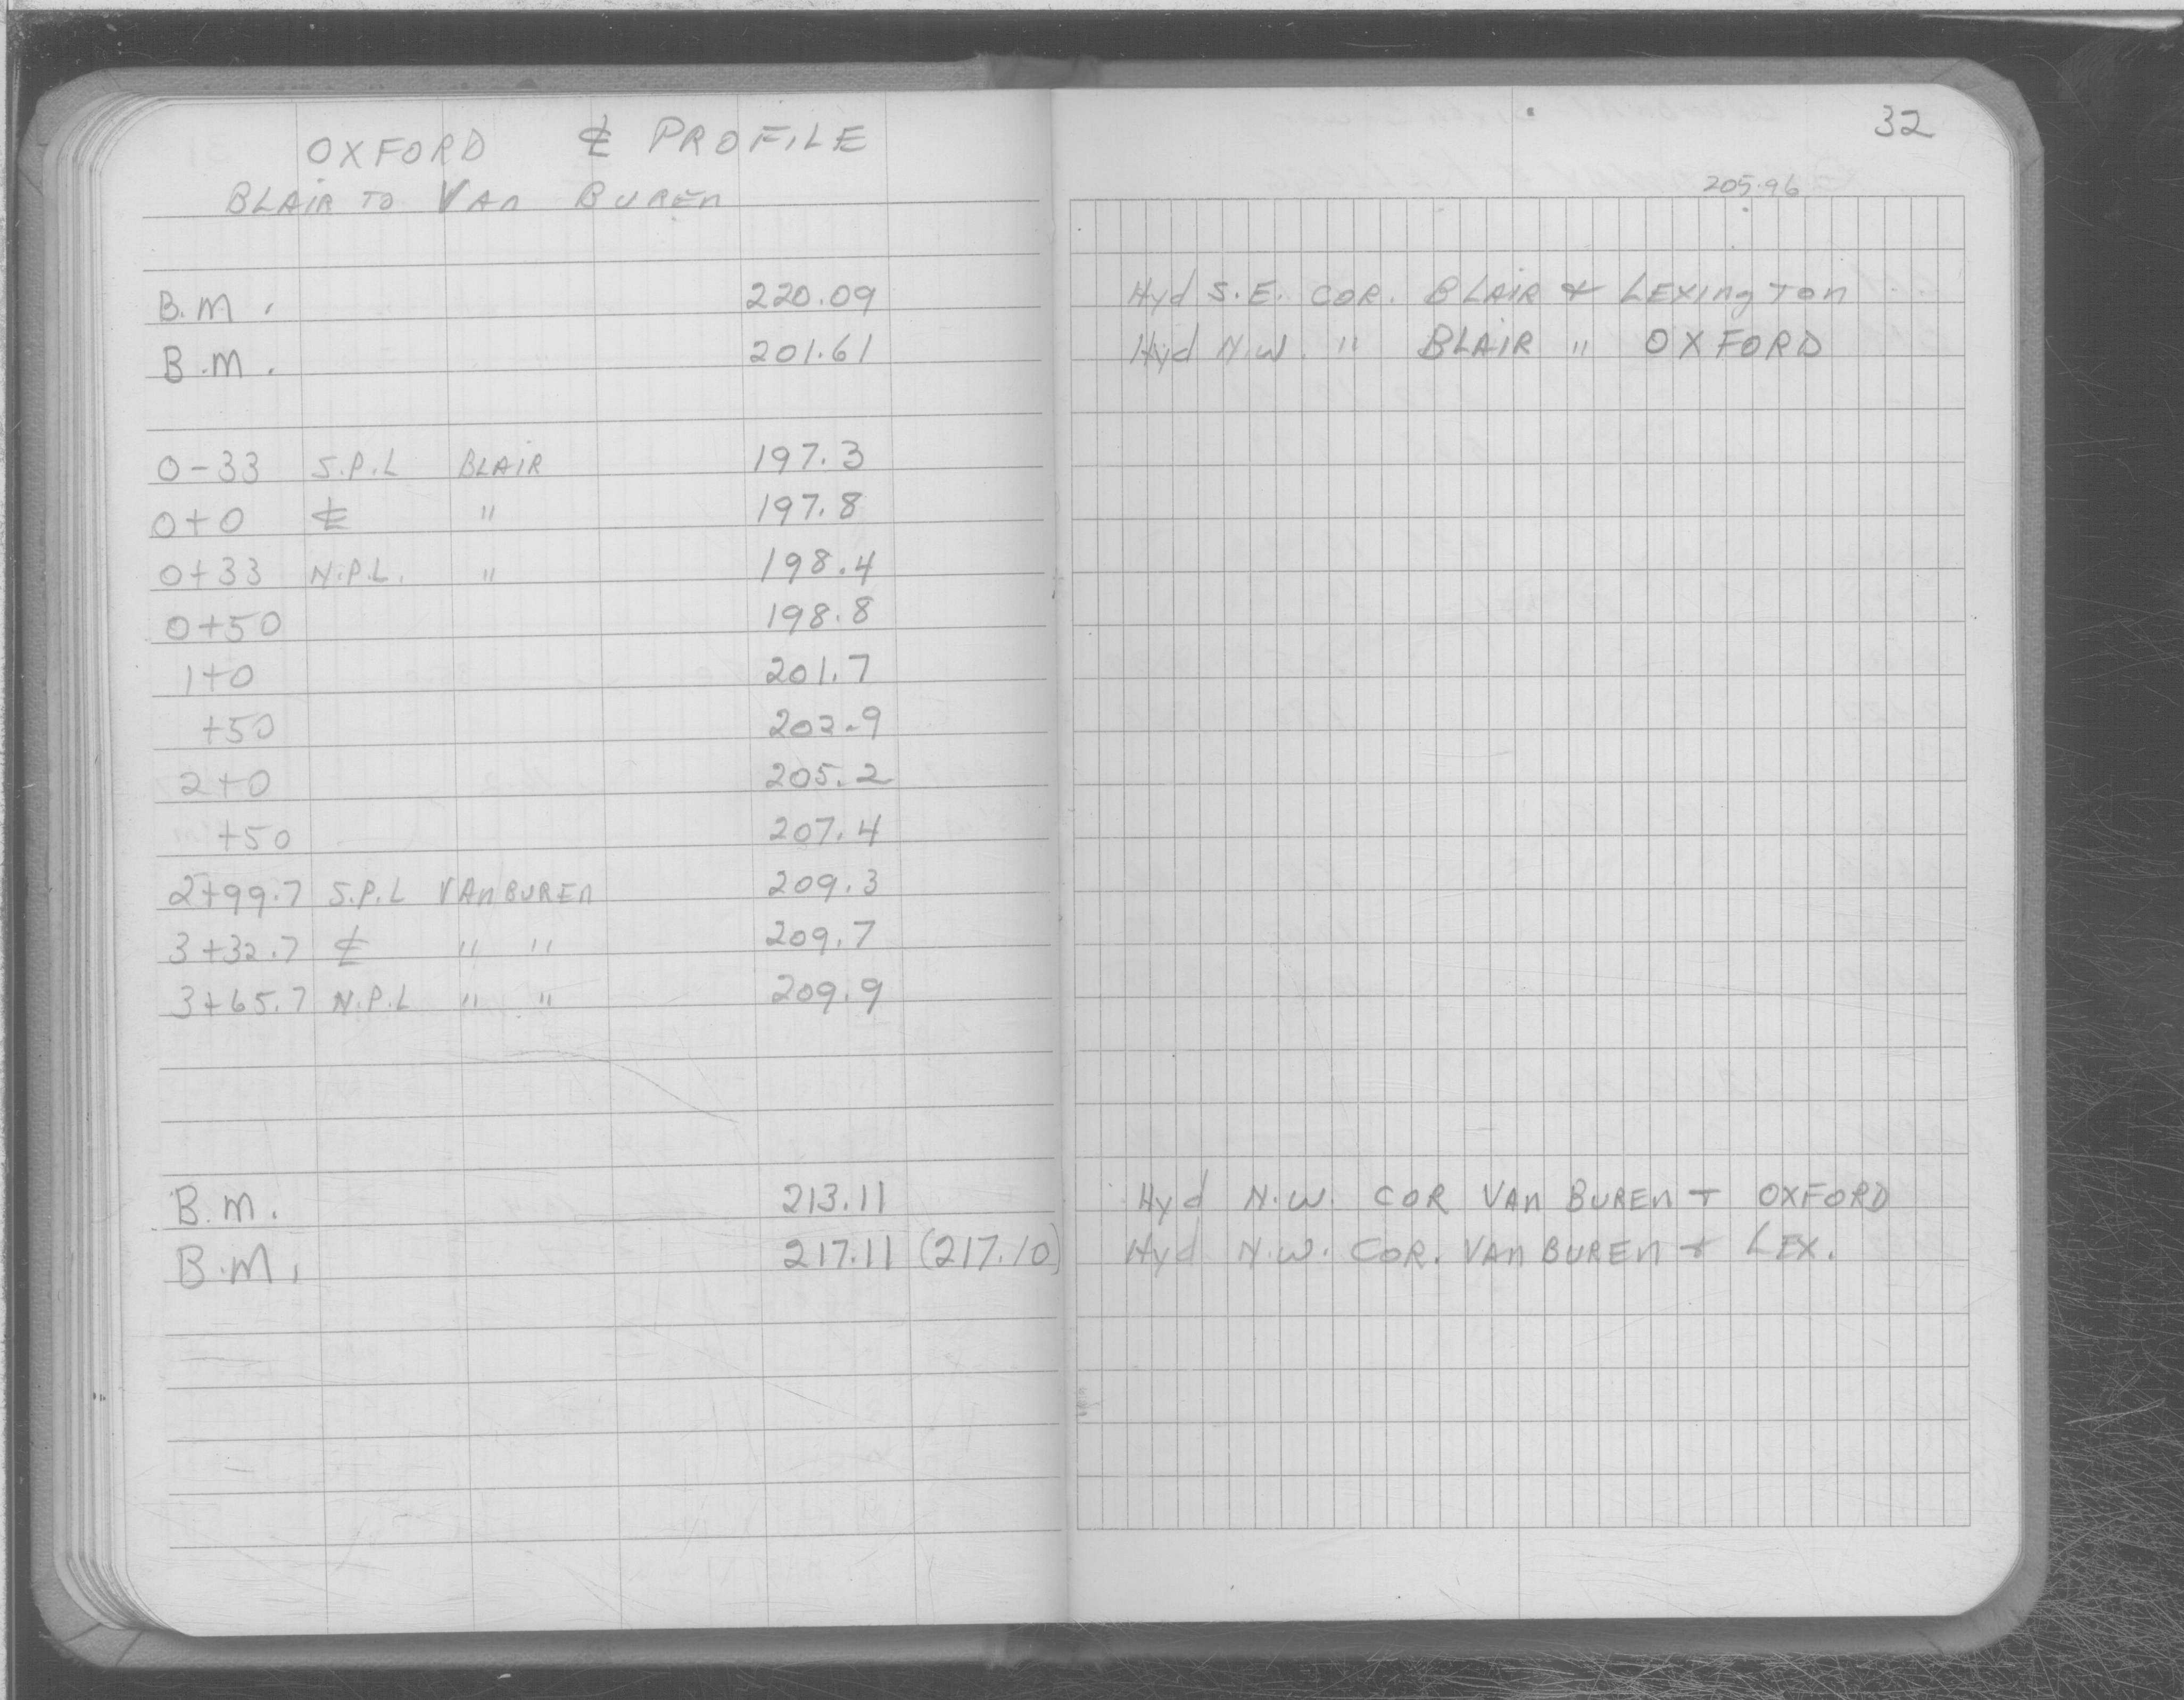 OXFORD ℄ PROFILE
BLAIR TO VAN BUREN
B.M. 220.09
B.M. 201.61
0-33 S.P.L BLAIR 197.3
0+0 ℄ " 197.8
0+33 N.P.L. " 198.4
0+50 198.8
1+0 201.7
+50 203.9
2+0 205.2
+50 207.4
2+99.7 S.P.L VAN BUREN 209.3
3+32.7 ℄ " " 209.7
3+65.7 N.P.L " " 209.9
B.M. 213.11
B.M. 217.11 (217.10)
32
205.96
Hyd S.E. COR. BLAIR + LEXINGTON
Hyd N.W. " BLAIR " OXFORD
Hyd N.W. COR VAN BUREN + OXFORD
Hyd N.W. COR. VAN BUREN + LEX.